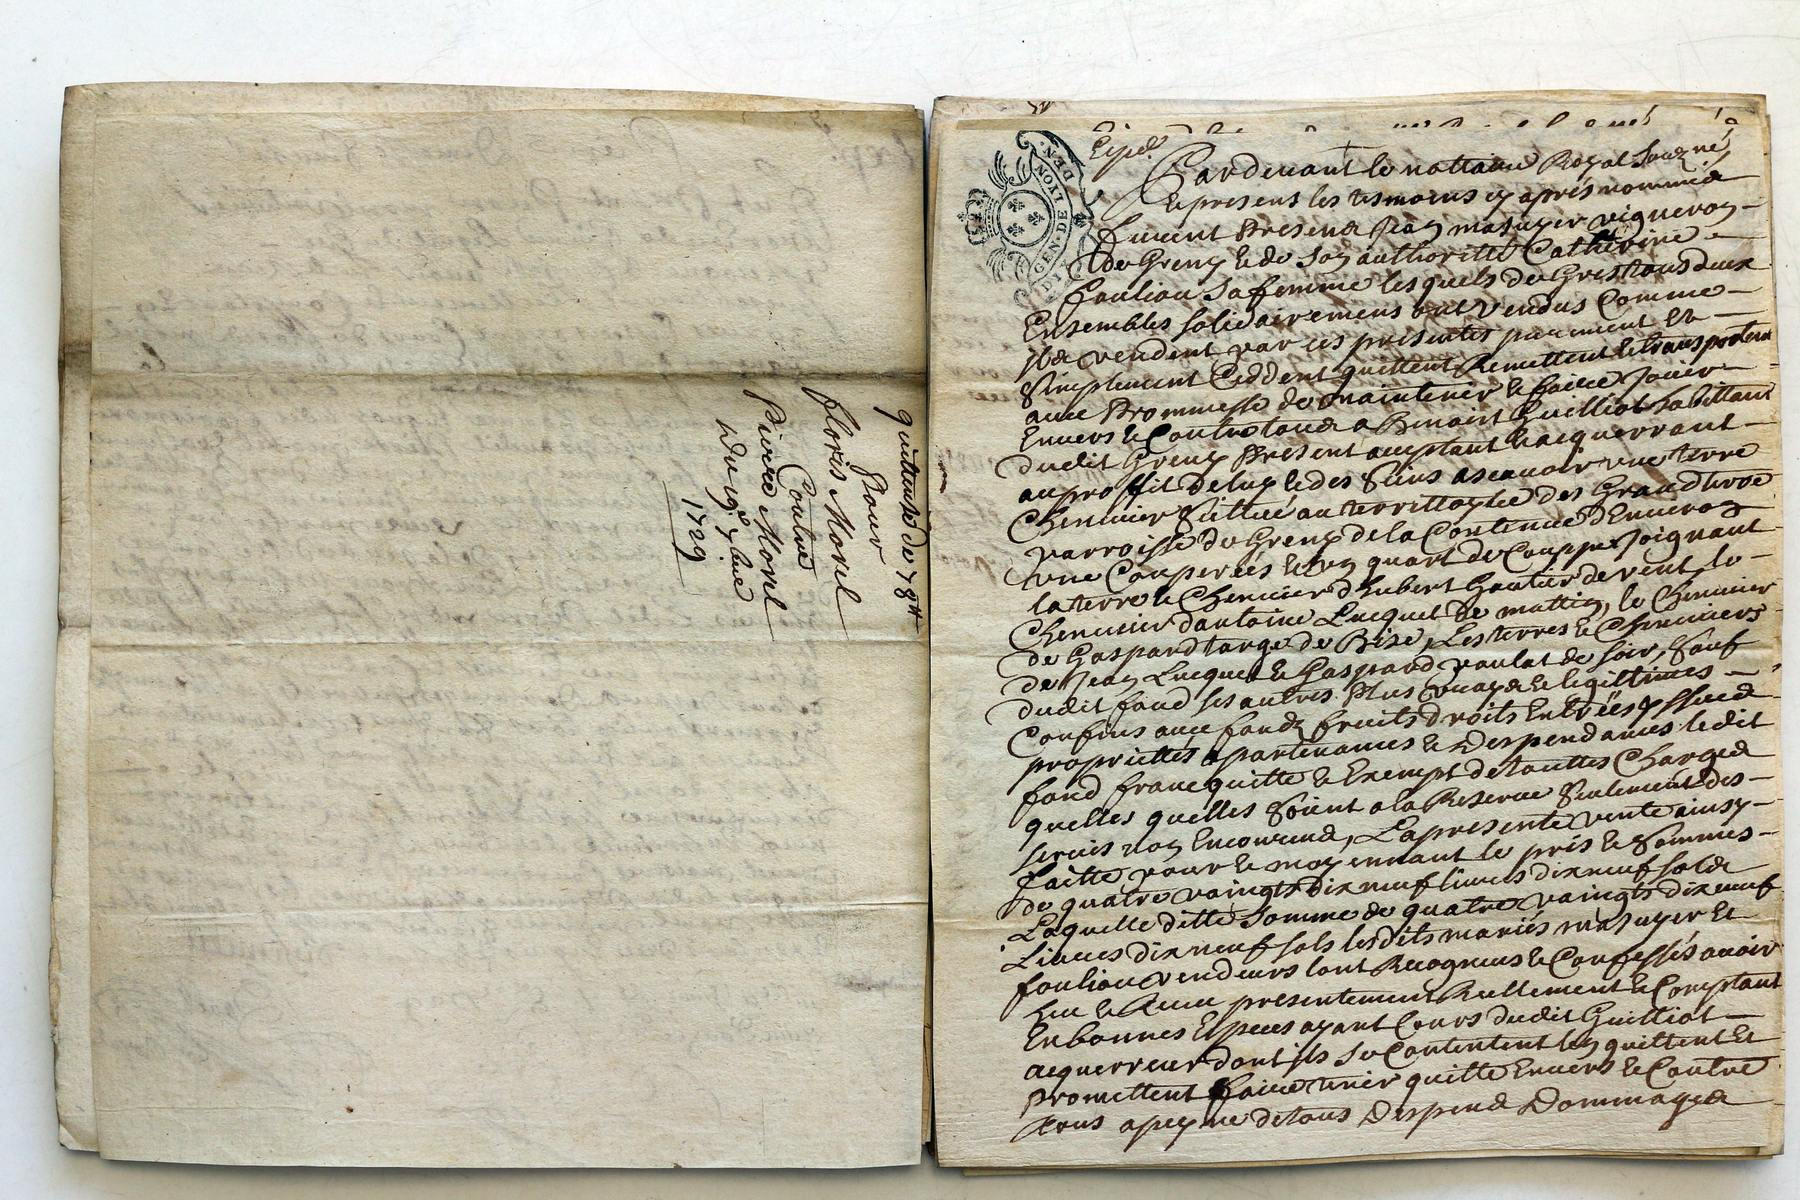 quittense de 78ᵗᵗ
pour
floris Morel
Contre
Pierre Morel
Du 19ᵉ xbre
1729
GEN·D·DE·LYON
Par devant le nottaire Royal Souzné
& presens les tesmoins cy aprés nommés
furent Presens Jean masuyer vigneron
de Grenz & de son authoritté Catherine
fouliou Sa femme lesquels de Gres tous deux
Ensembles solidairemens ont vendus Comme
ils vendent par ces presentes purement Et
Simplement Ceddent quittent Remettent & transportent
avec Prommesse de maintenir & faire Jouir
Envers & Contre tous a Benoist Guilliot habittant
dudit Grenz Present acceptant & acquerrant
au proffit de luy & des Siens ascavoir une terre
Chenevier Sittué au territtoyre des Grand
parroisse de Grenz de la Contenue d'Environ
une Couperées & un quart de Couppe Joignant
la terre & Chenevier d'hubert Gautier de vent, le
Chenevier dantoine Lucquet de mattin, le Chenevier
de Gaspard targe de Bize, Les terres & Cheneviers
de Jean Lucquet & Gaspard paulat de soir, Sauf
dudit fond ses autres Plus vrays & legittimes
Confins avec fonds fruits droits Entrées yssues
proprietés apartenances & Despendances ledit
fond franc quitte & Exempt de touttes Charges
quelles quelles Soient a la Reserve Seulement des
servis non Encourus, La presente vente ainsy
faitte pour & moyennant le pris & Sommes
de quatre vaingts dix neuf livres dix neuf sols
Laquelle ditte Somme de quatre vaingts dix neuf
Livres dix neuf sols lesdits mariés masuyer Et
fouliou vendeurs sont Recognus & Confessés avoir
heu & Receu presentement Reellement & Comptant
En bonnes Especes ayant Cours dudit Guilliot
acquerreur dont ils se Contentent len quittent Et
Promettent faire tenir quitte Envers & Contre
tous a peyne de tous Despens Dommages